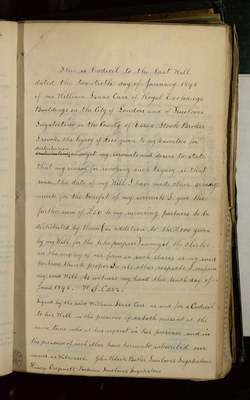 This is Codicil to the Last Will
dated the twentieth day of January 1898
of me William Isaac Carr of Royal Exchange
Buildings in the City of London and of Trueloves
Ingatestone in the County of Essex Stock Broker
I revoke the legacy of given to my Executors for
distribution amongst my servants and desire to state
that my reason for revoking such legacy is that
since the date of my Will I have made other
ments for the benefit of my servants I give the
further sum of to my surviving partners to be
distributed by them (in addition to the £200 given
by my Will for the like purpose) amongst the clerks
in the employ of our firm in such shares as my said
partners think proper In all other respects I confirm
my said Will In witness my hand this tenth day of
June 1898. W. I. Carr.
Signed by the said William Isaac Carr as and for a Codicil
to his Will in the presence of us both present at the
same time who at his request in his presence and in
the presence of each other have hereunto subscribed our
names as Witnesses John Clark Butler Truelove Ingatestone
Henry Gardener Truelove Ingatestone